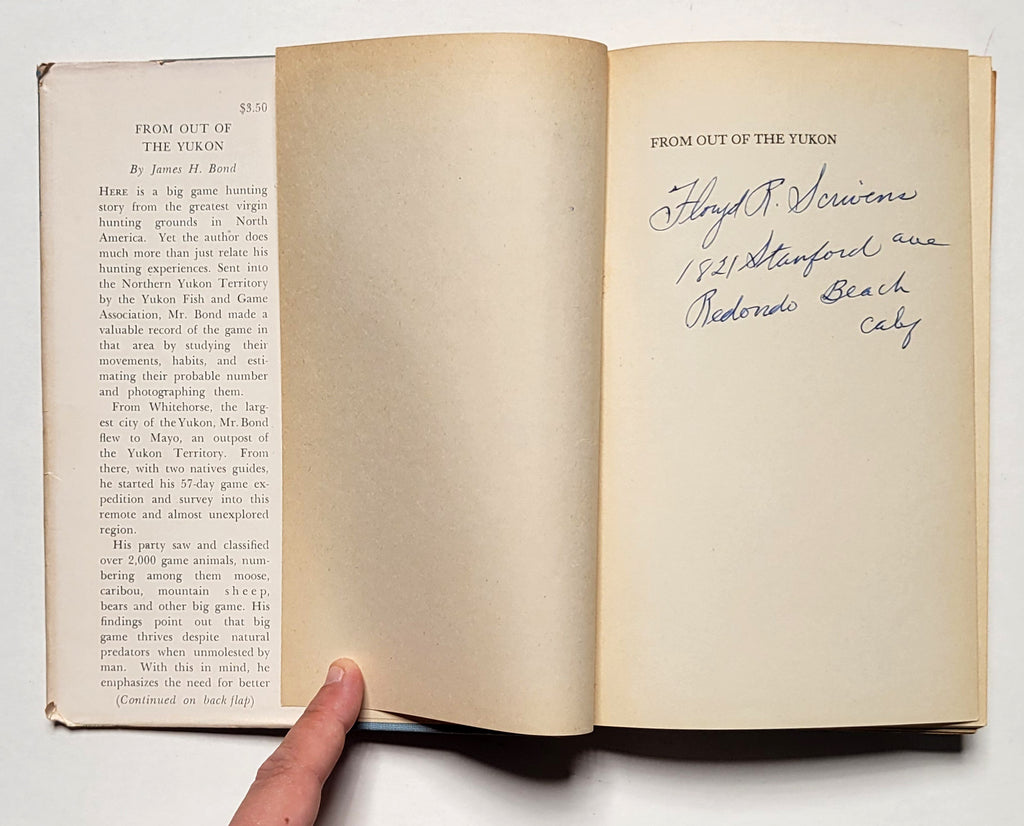 $3.50
FROM OUT OF
THE YUKON
By James H. Bond
HERE is a big game hunting
story from the greatest virgin
hunting grounds in North
America. Yet the author does
much more than just relate his
hunting experiences. Sent into
the Northern Yukon Territory
by the Yukon Fish and Game
Association, Mr. Bond made a
valuable record of the game in
that area by studying their
movements, habits, and esti-
mating their probable number
and photographing them.
From Whitehorse, the larg-
est city of the Yukon, Mr. Bond
flew to Mayo, an outpost of
the Yukon Territory. From
there, with two natives guides,
he started his 57-day game ex-
pedition and survey into this
remote and almost unexplored
region.
His party saw and classified
over 2,000 game animals, num-
bering among them moose,
caribou, mountain sheep,
bears and other big game. His
findings point out that big
game thrives despite natural
predators when unmolested by
man. With this in mind, he
emphasizes the need for better
(Continued on back flap)
FROM OUT OF THE YUKON
Floyd R. Scrivens
1821 Stanford ave
Redondo Beach
Calif